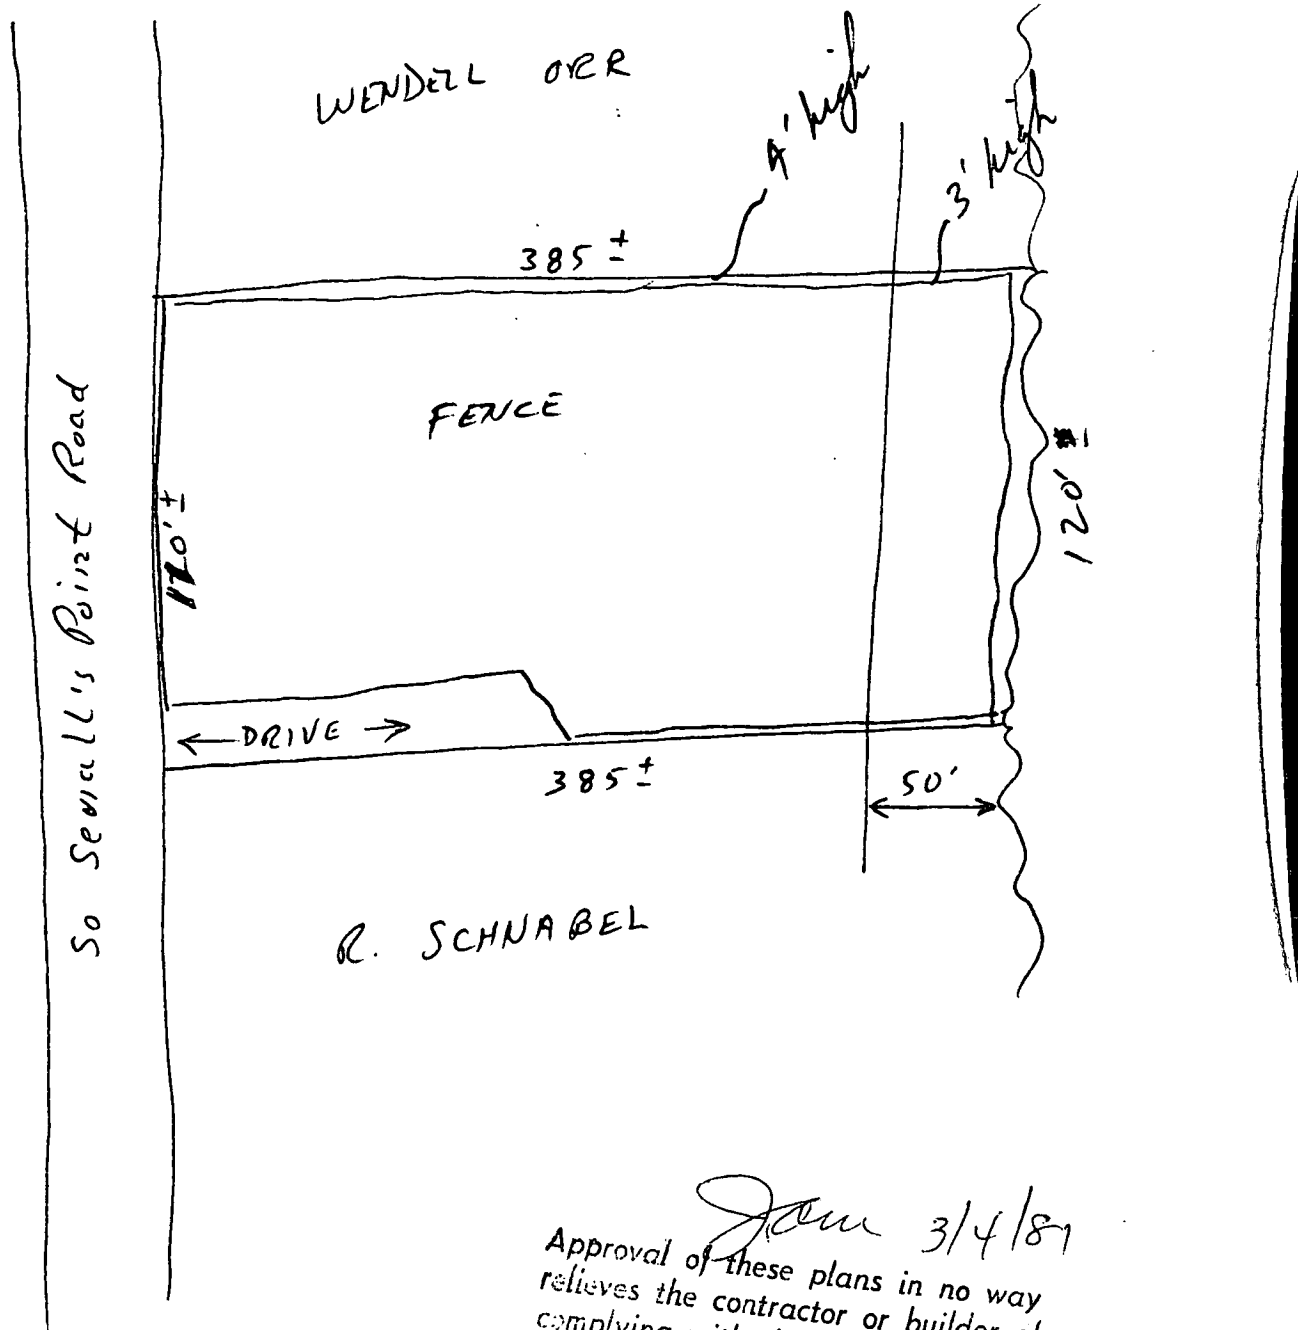 WENDELL ORR
4' high
3' high
385 ±
FENCE
So Sewall's Point Road
120' ±
120' ±
← DRIVE →
385 ±
50'
R. SCHNABEL
3/4/87
Approval of these plans in no way
relieves the contractor or builder of
complying with